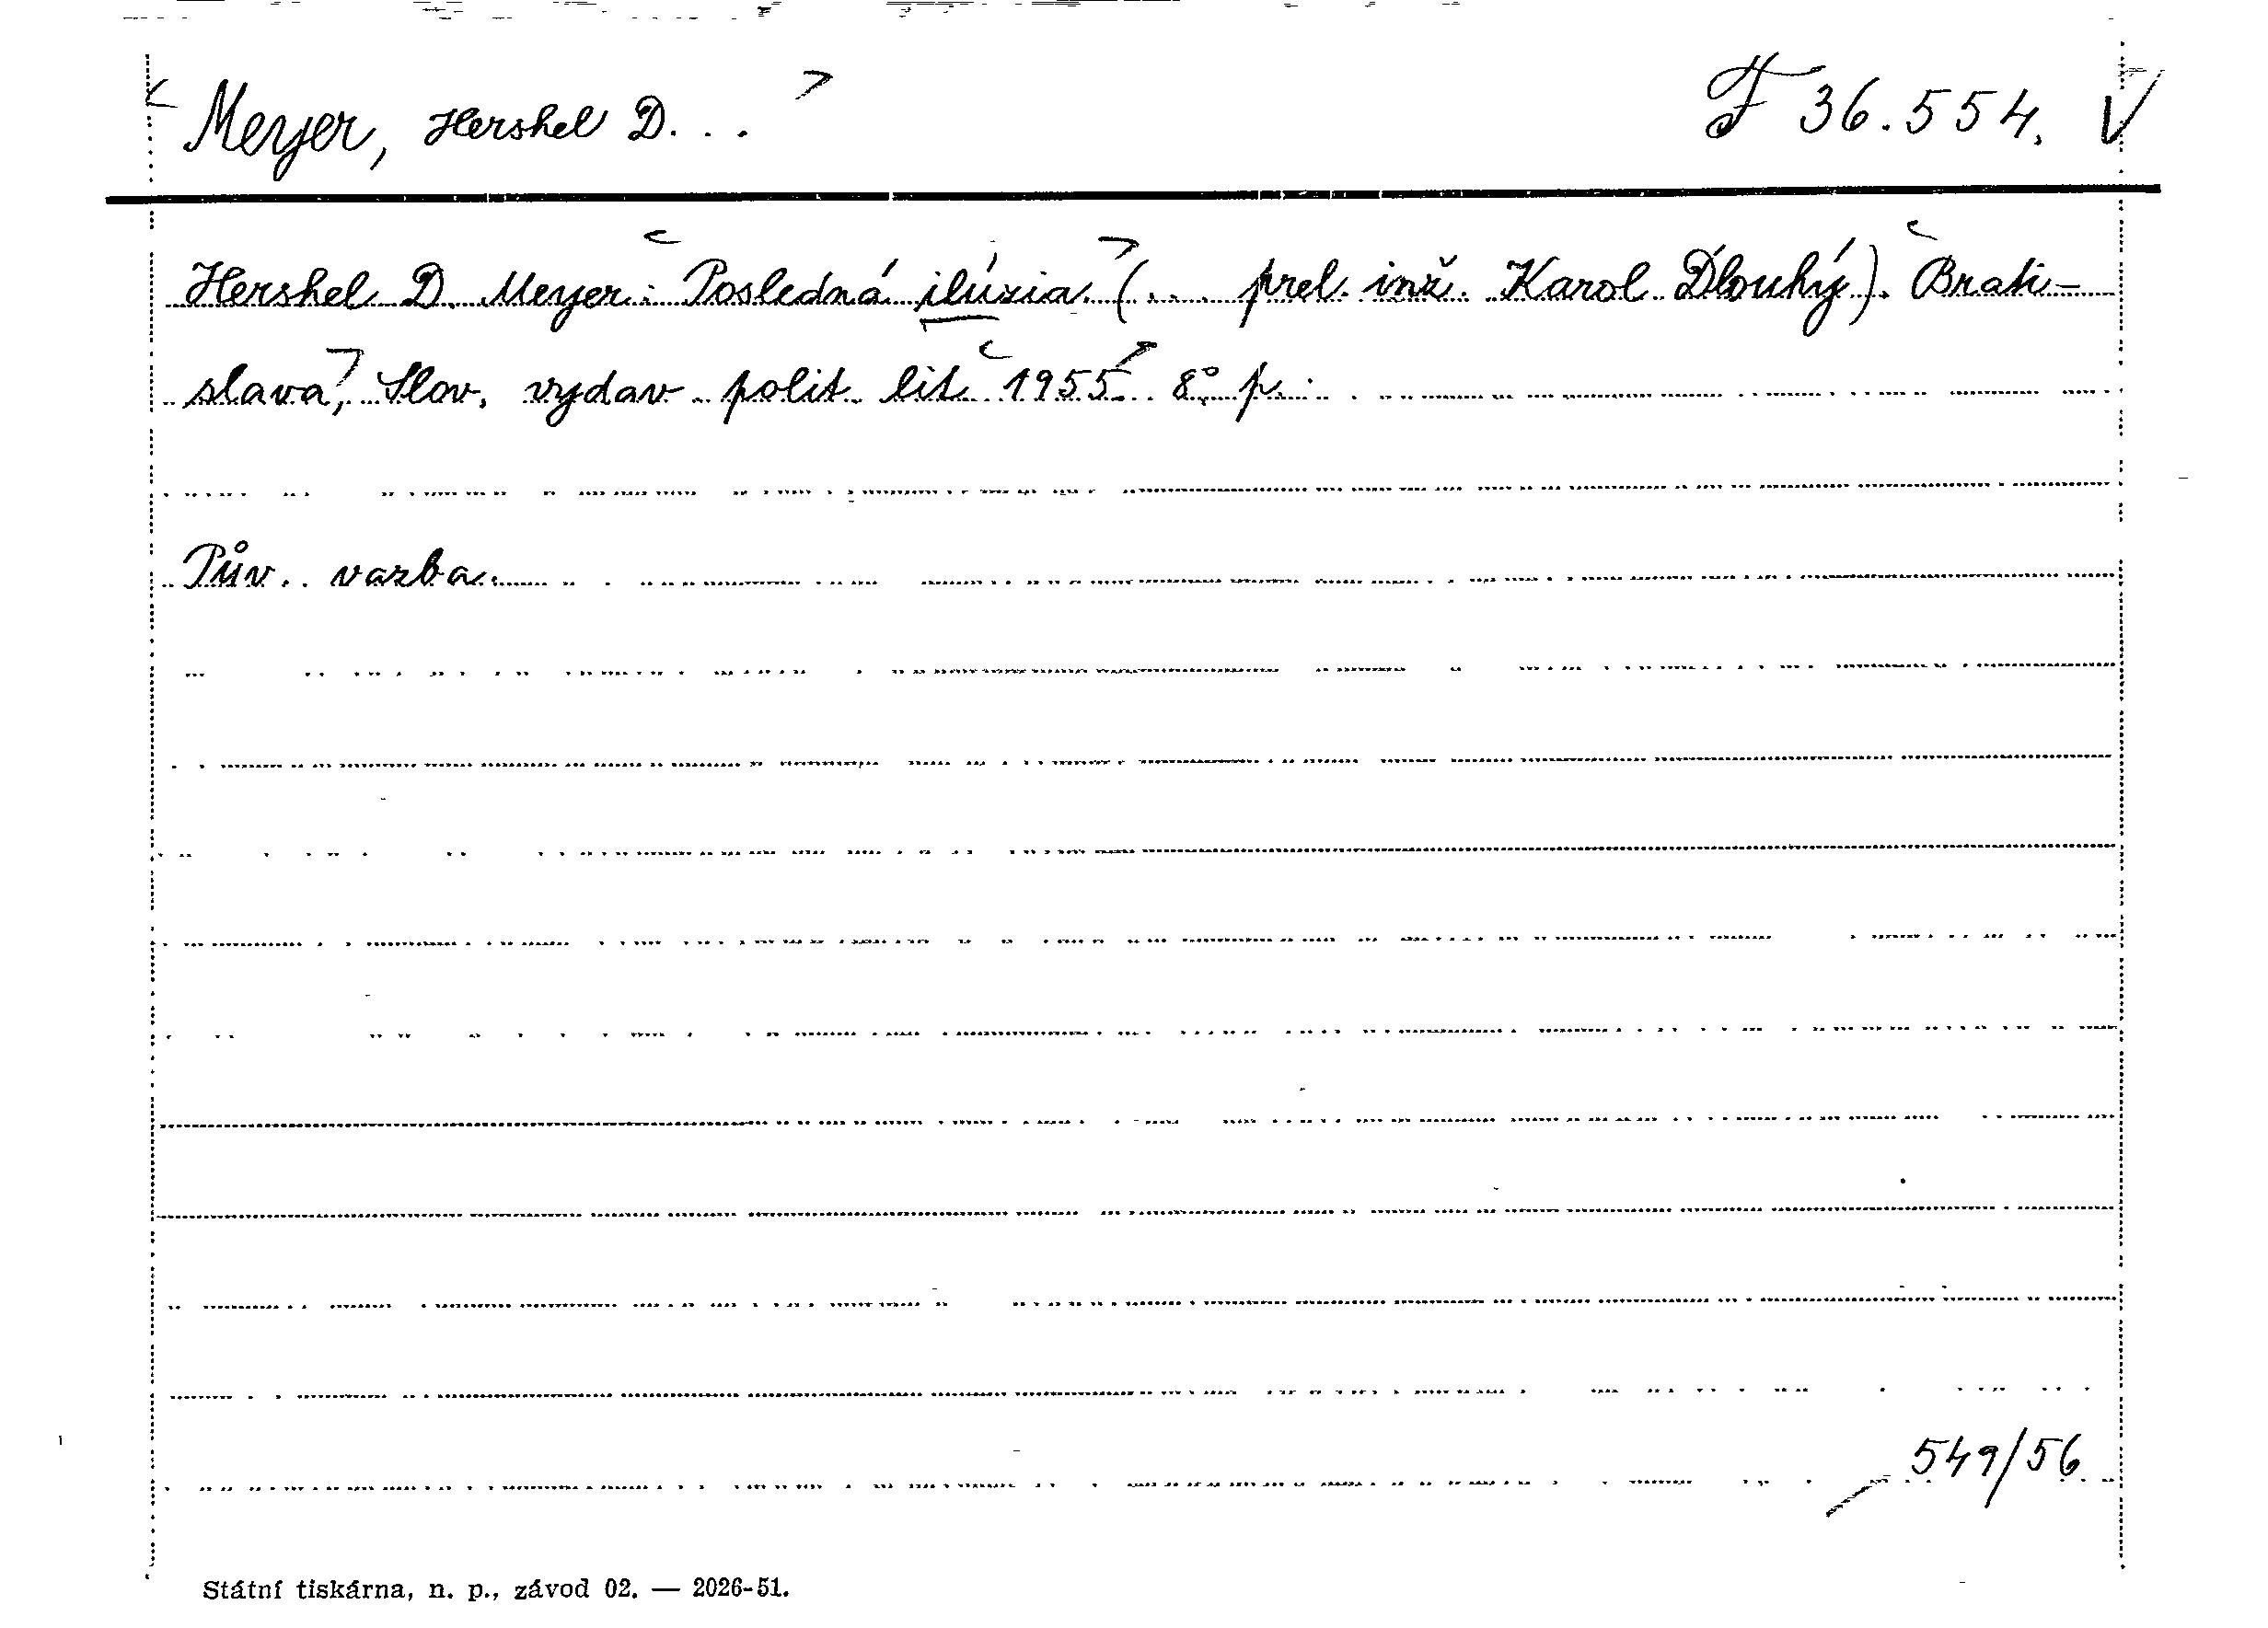 Meyer, Hershel D. . . F 36.554. V
Hershel D. Meyer: Posledná ilúzia. (... prel. inž. Karol Dlouhý). Brati-
slava, Slov. vydav. polit. lit. 1955. 8° p.
Pův. vazba.
549/56
Státní tiskárna, n. p., závod 02. — 2026-51.